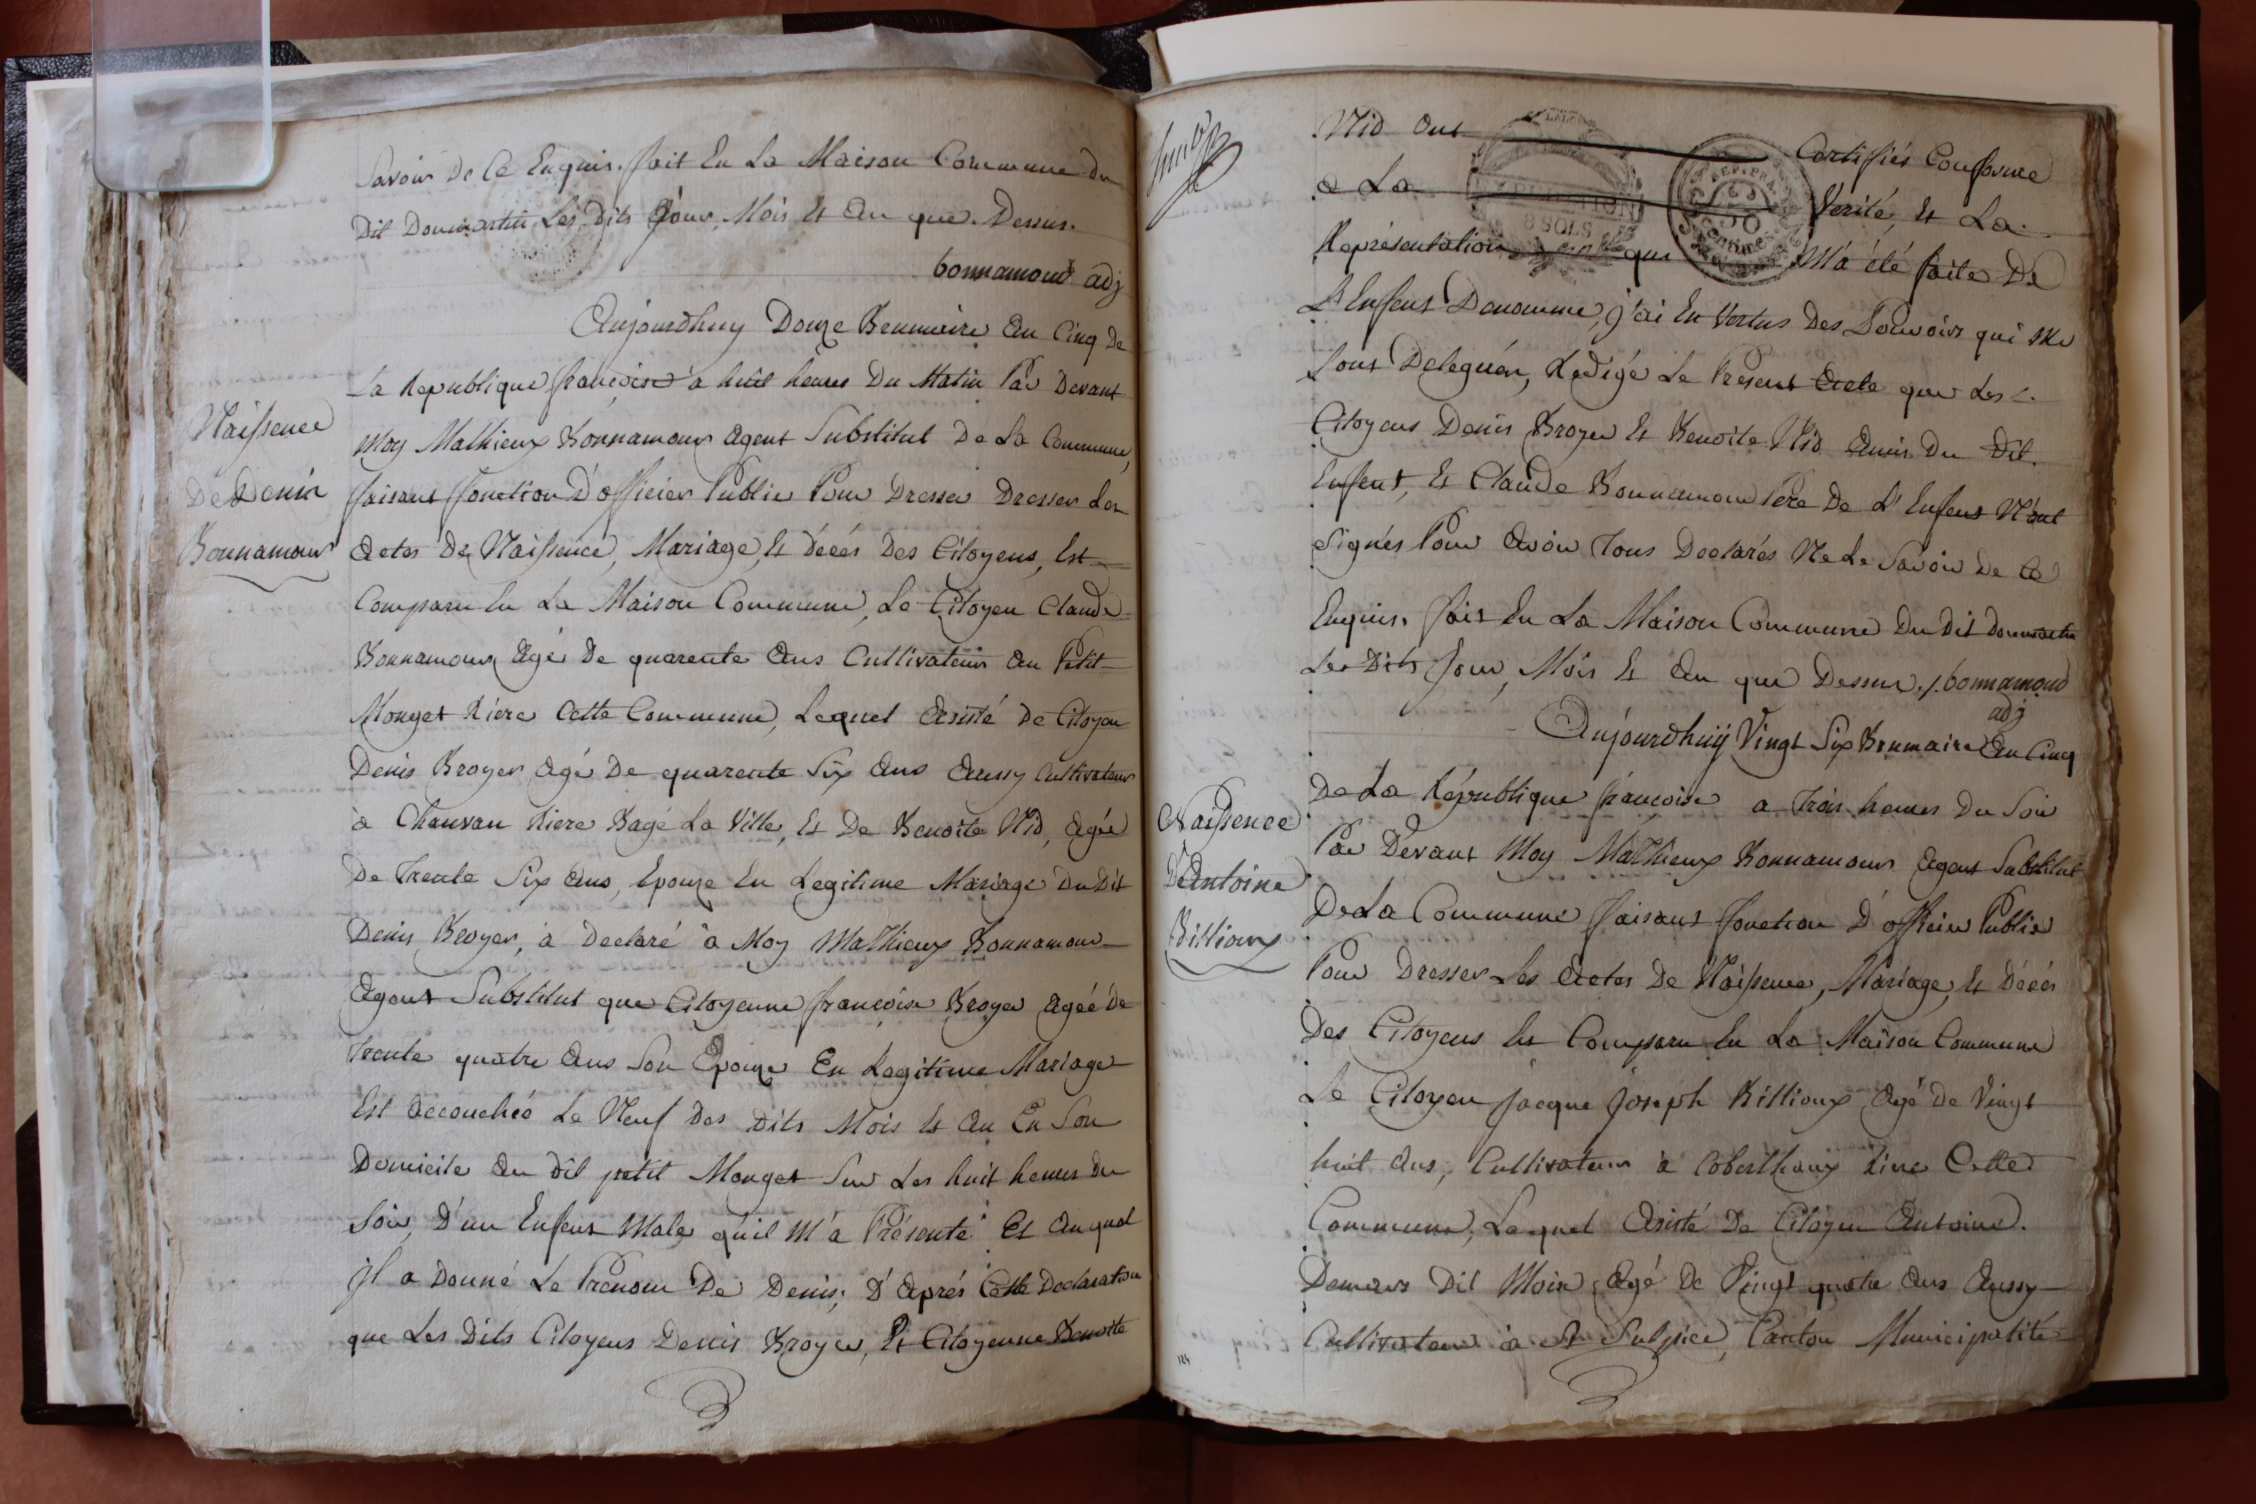 Savoir De Ce Enquis. fait En La Maison Commune du
Dit Dommartin Les Dits Jour, Mois Et An que Dessus.
bonnamour adj
Aujourdhuy Douze Brumaire An Cinq De
La Republique françoise a huit heures Du Matin Par Devant
Moy Mathieux Bonnamour Agent Substitut De La Commune,
faisant fonction D'officier Public Pour Dresser Dresser Les
Actes De Naissence, Mariage, Et décés Des Citoyens, Est
Comparu En La Maison Commune, Le Citoyen Claude
Bonnamour Agé De quarente Ans Cultivateur Au Petit
Monget Riere Cette Commune, Lequel Asisté De Citoyen
Denis Broyer Agé De quarente Six Ans Aussy Cultivateur
à Chanvau Riere Bagé La Ville, Et De Benoite Nid, Agée
De Trente Six Ans, Epouze En Legitime Mariage Du Dit
Denis Broyer, à Declaré à Moy Mathieux Bonnamour
Agent Substitut que Citoyenne françoise Broyer Agéé De
Trente quatre Ans Son Epouze En Legitime Mariage
Est Accouchéé Le Neuf Des Dits Mois Et An En Son
Domicile Au Dit petit Monget Sur Les huit heures du
Soir, D'un Enfent Male qu'il M'a Présenté Et Auquel
Il a Donné Le Prenom De Denis; D'Aprés Cette Declaration
que Les Dits Citoyens Denis Broyer, Et Citoyenne Benoite
Naissence
De Denis
Bonnamour
Nid Ont Certifiés Conforme
a La Verité, Et La
Représentation qui M'a été faite De
L'Enfent Denommé, j'ai En Vertus Des Pouvoirs qui Me
Sont Delegués, Redigé Le Present Acte que Les
Citoyens Denis Broyer Et Benoite Nid Amis Du Dit
Enfent, Et Claude Bonnamour Père De L'Enfent N'ont
Signés Pour Avoir Tous Declarés Ne Le Savoir De Ce
Enquis. fait En La Maison Commune Du Dit Dommartin
Les Dits Jour, Mois Et An que Dessus. bonnamour
adj
Aujourdhuy Vingt Six Brumaire An Cinq
De La République françoise a Trois heures Du Soir
Par Devant Moy Mathieux Bonnamour Agent Substitut
De La Commune faisant fonction D'officier Public
Pour Dresser Les Actes De Naissence, Mariage, Et Décés
Des Citoyens Est Comparu En La Maison Commune
Le Citoyen Jacque Joseph Billioux Agé De Vingt
huit Ans, Cultivateur à Coberthoux Riere Cette
Commune, Lequel Asisté De Citoyen Antoine
Dit Moin Agé De Vingt quatre Ans Aussy
Cultivateur à St Sulpice, Canton Municipalité
Naissence
D'Antoine
Billioux
EXPEDITION
8 SOLS
REP. FRA.
50
centimes